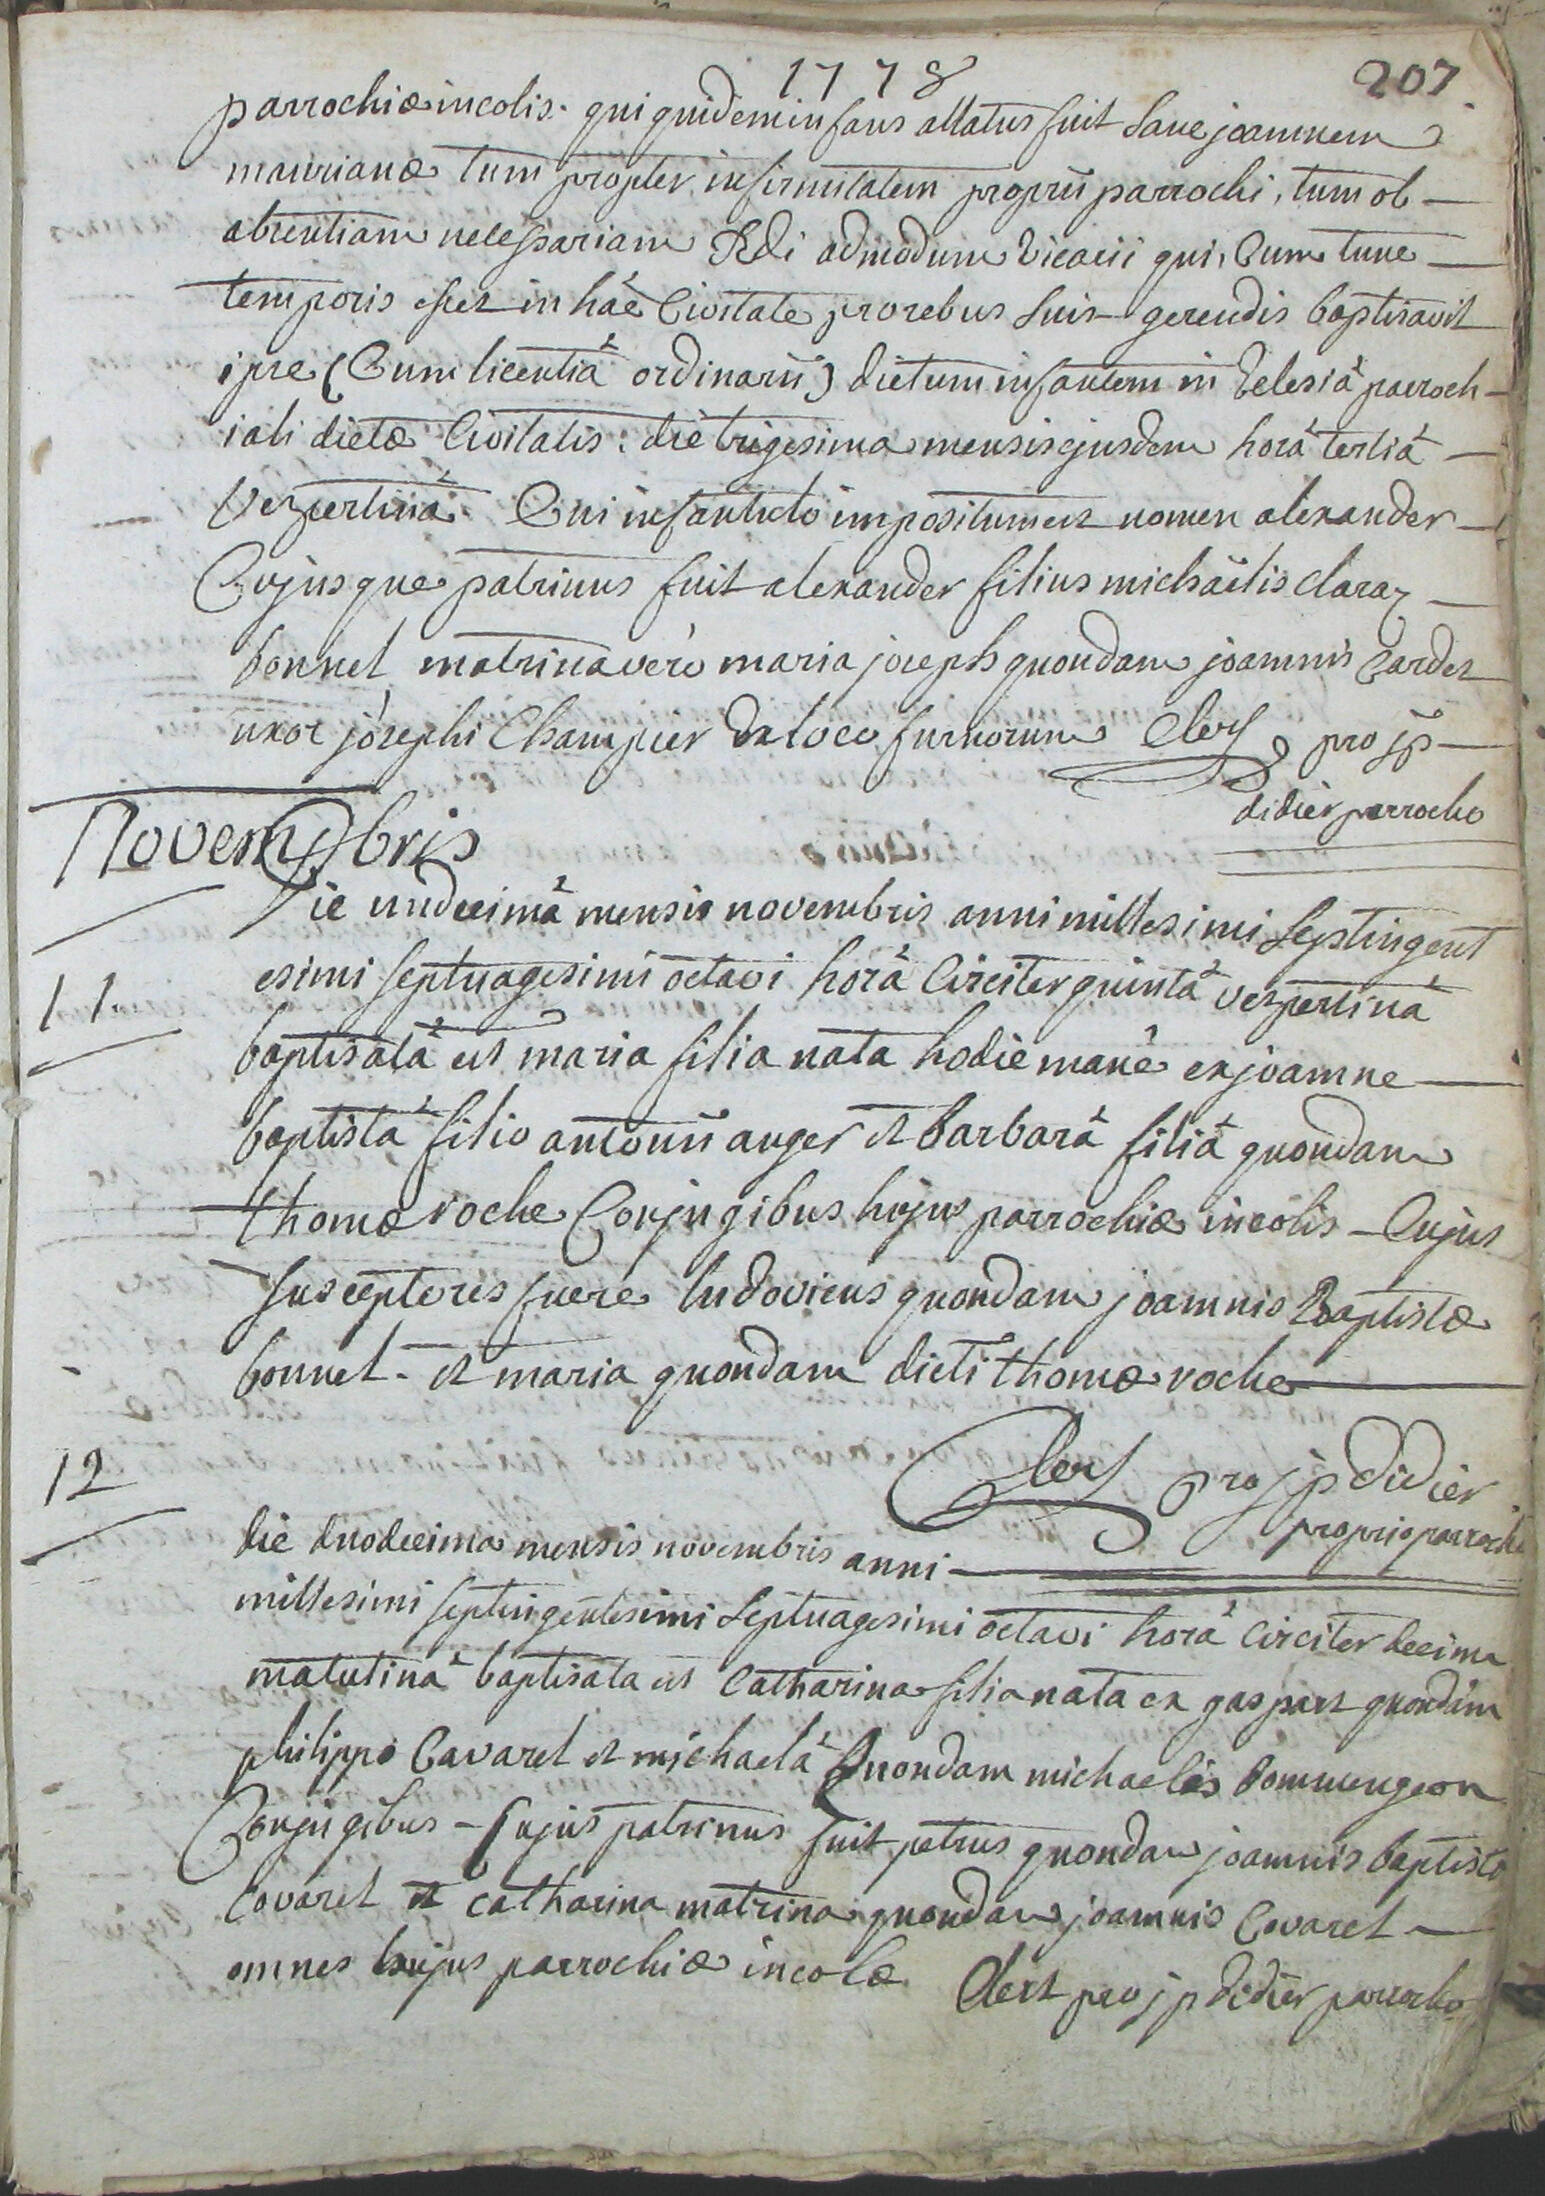 1778 207
parrochiæ incolis. qui quidem infans allatus fuit Sane joannem
maurianæ tum propter infirmitatem proprii parrochi, tum ob
absentiam necessariam Rdi admodum vicarii qui, Cum tunc
temporis esset in hâc Civitate pro rebus suis gerendis baptisavit
ipse (Cum licentiâ ordinarii) dictum infantem in Eclesiâ parroch-
iali dictæ Civitatis: die trigesima mensis ejusdem horâ tertiâ
vezpertinâ. Cui infantulo impositum est nomen alexander
Cujusque patrinus fuit alexander filius michaëlis claraz
bonnel matrina verò maria joseph quondam joannis Cardet
uxor josephi Champier Ex loco furnorum Clert pro jp
didier parrocho
Novembris
11. Die undecimâ mensis novembris anni millesimi Septingent
esimi septuagesimi octavi horâ Circiter quintâ vezpertinâ
baptisatâ est maria filia nata hodie manè ex joanne
baptistâ filio antonii auger et barbarâ filiâ quondam
thomæ roche Conjugibus hujus parrochiæ incolis - Cujus
susceptores fuere ludovicus quondam joannis Baptistæ
bonnel - et maria quondam dicti thomæ roche
Clert pro jp didier
proprio parrocho
12 die duodecima mensis novembris anni
millesimi septingentesimi Septuagesimi octavi horâ Circiter decima
matutinâ baptisata est Catharina filia nata ex gaspart quondam
philippo Cavarel et michaelâ Quondam michaelis bommengeon
Conjugibus - Cujus patrinus fuit petrus quondam joannis baptistæ
Covarel et catharina matrina quondam joannis Covarel
omnes hujus parrochiæ incolæ Clert pro jp didier parrocho